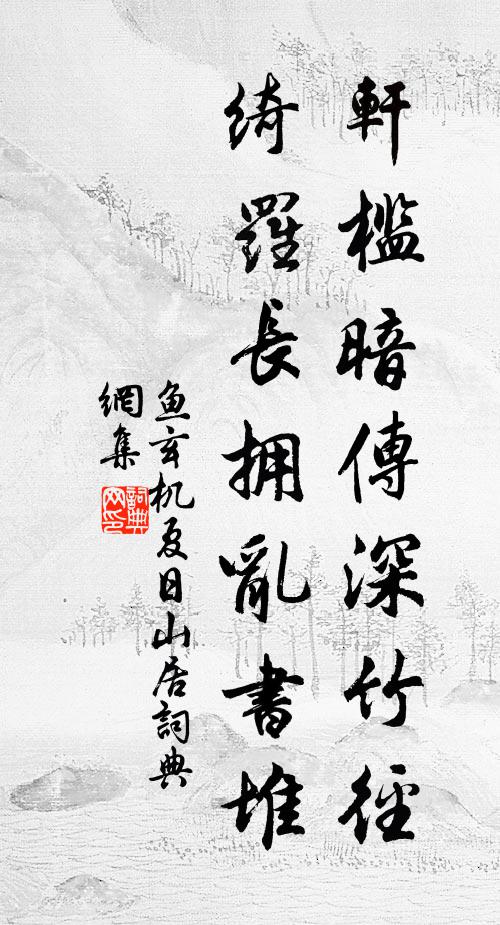 軒檻暗傳深竹徑
綺羅長拥亂書堆
鱼玄机夏日山居詞典
網集
詞典
网印